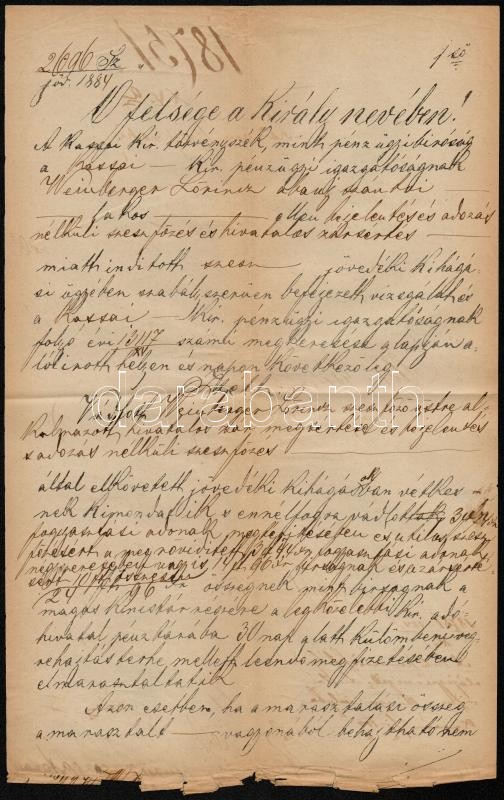 2696 Sz
jöv. 1884
1 ső
Ő felsége a Király nevében!
A Kassai Kir. törvényszék, mint pénzügyi bíróság
a Kassai — Kir. pénzügyi igazgatóságnak
Weinberger Lőrincz abauj szántói
lakos
elleni bejelentés és adózás
nélküli szeszfőzés és hivatalos zársértés
miatt indított szesz jövedéki kihágá-
si ügyében szabályszerüen befejezett vizsgálat és
a Kassai — Kir. pénzügyi igazgatóságnak
folyó évi 13117 számú megkeresése alapján a-
lólirott helyen és napon következőleg
Itélt
Vádlott Weinberger Lőrincz szeszfőző üstre al-
kalmazott hivatalos zár megsértése és bejelentés
s adózás nélküli szeszfőzés
által elkövetett jövedéki kihágásban vétkes-
nek kimondatik s ennélfogva vádlott
fogyasztási adónak megtérítésében
összegnek mint birságnak a
magas kincstár részére a legközelebbi kir. adó-
hivatal pénztárába 30 nap alatt külömbeni vég-
rehajtás terhe mellett leendő megfizetésében
elmarasztaltatik
Azon esetben, ha a marasztalási összeg
a marasztalt — vagyonából behajtható nem
darabanth